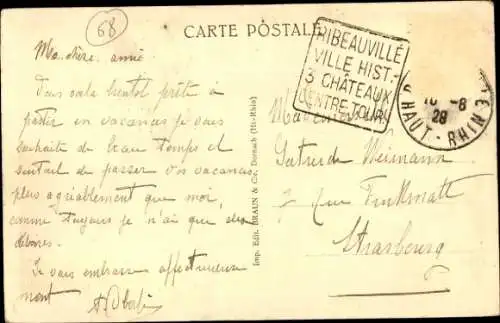 68
CARTE POSTALE
RIBEAUVILLÉ
VILLE HIST.-
3 CHÂTEAUX
CENTRE TOUR.
10 -8
28
HAUT-RHIN
Ma chère amie
Vous voilà bientôt prête à
partir en vacances je vous
souhaite de beau temps et
surtout de passer vos vacances
plus agréablement que moi,
comme toujours je n'ai que des
déboires.
Je vous embrasse affectueuse
ment
Imp. Edit. BRAUN & Cie, Dornach (Ht-Rhin)
Gertrude Weimann
7 rue Finkmatt
Strasbourg